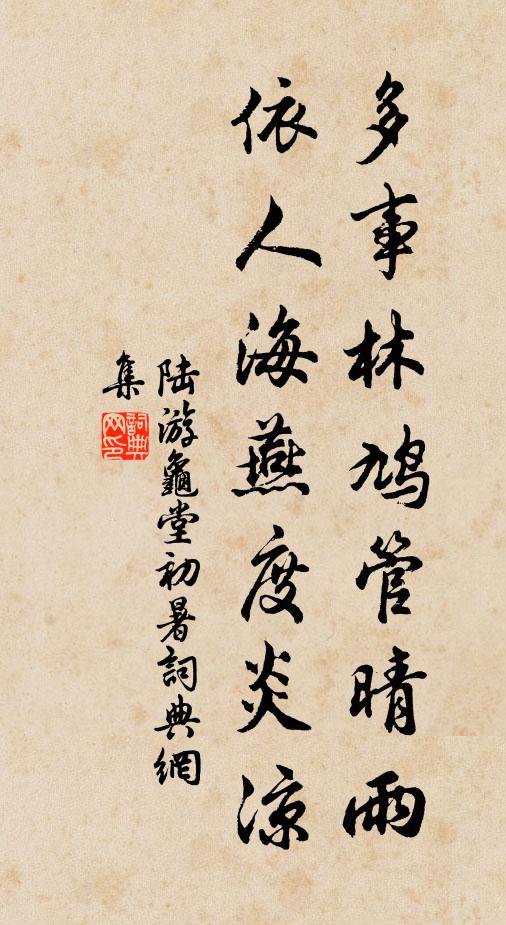 多事林鸠管晴雨
依人海燕度炎凉
陆游龜堂初暑詞典網
集
詞典
网印